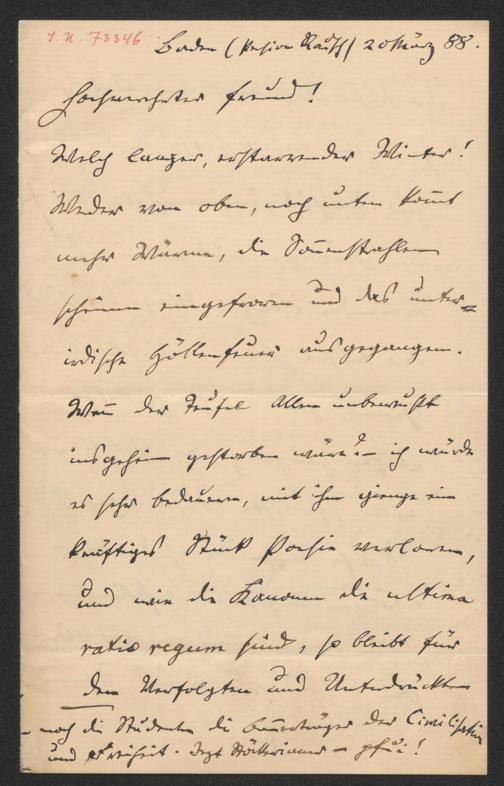 I. N. 73346
Baden (Pension Rausch) 20 März 88.
Hochverehrter Freund!
Welch langer, erstarrender Winter!
Weder von oben, noch unten kom̄t
mehr Wärme, die Son̄enstrahlen
scheinen eingefroren und das unter-
irdische Höllenfeuer ausgegangen.
Wen̄ der Teufel Allen unbewußt
insgeheim gestorben wäre? – ich würde
es sehr bedauern, mit ihm gienge ein
kräftiges Stück Poesie verloren,
und wie die Kanonen die ultima
ratio regum sind, so bleibt für
den Verfolgten und Unterdrückten
– noch die Studenten die Bannerträger der Civilisation
und Freiheit. Jetzt – pfui!